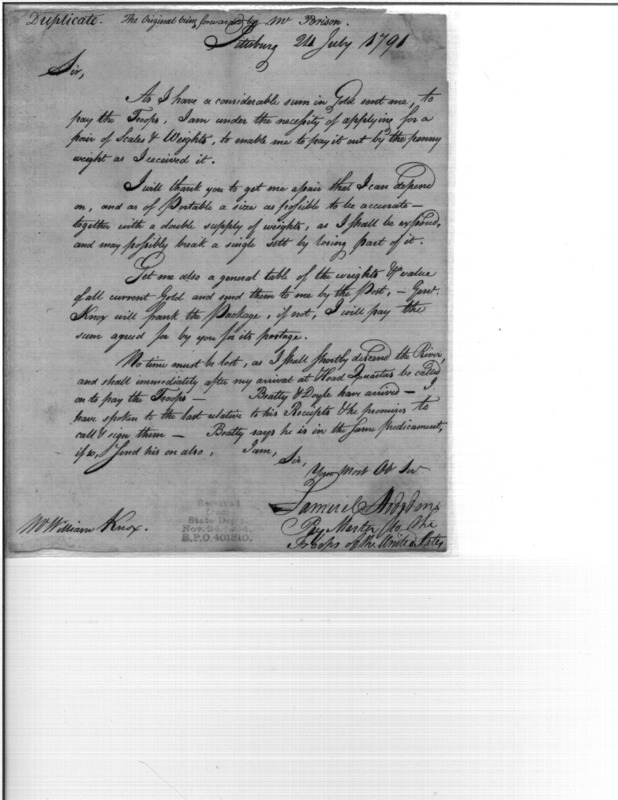 Duplicate. The Original being forwarded by Mr Brison.
Pittsburg 24 July 1791
Sir,
As I have a considerable sum in Gold sent me, to
pay the Troops, I am under the necessity of applying for a
pair of Scales & Weights, to enable me to pay it out by the penny
weight as I received it.
I will thank you to get me a pair that I can depend
on, and as of Portable a size as possible to be accurate —
together with a double supply of weights, as I shall be exposed,
and may possibly break a single sett by losing part of it.
Get me also a general table of the weights & value
of all current Gold and send them to me by the Post, — Genl.
Knox will frank the Package, if not, I will pay the
sum agreed for by you for its postage.
No time must be lost, as I shall shortly descend the River,
and shall immediately after my arrival at Head Quarters be called
on to pay the Troops — Beatty & Doyle have arrived — I
have spoken to the last relative to his Receipts & he promises to
call & sign them — Beatty says he is in the same predicament,
if so, send his on also, I am,
Sir,
Your Most Ob Ser
Samuel Hodgdon
Pay Master to the
Troops of the United States
Mr William Knox.
Received
from
State Dept.
Nov. 24,
R.P.O. 401310.